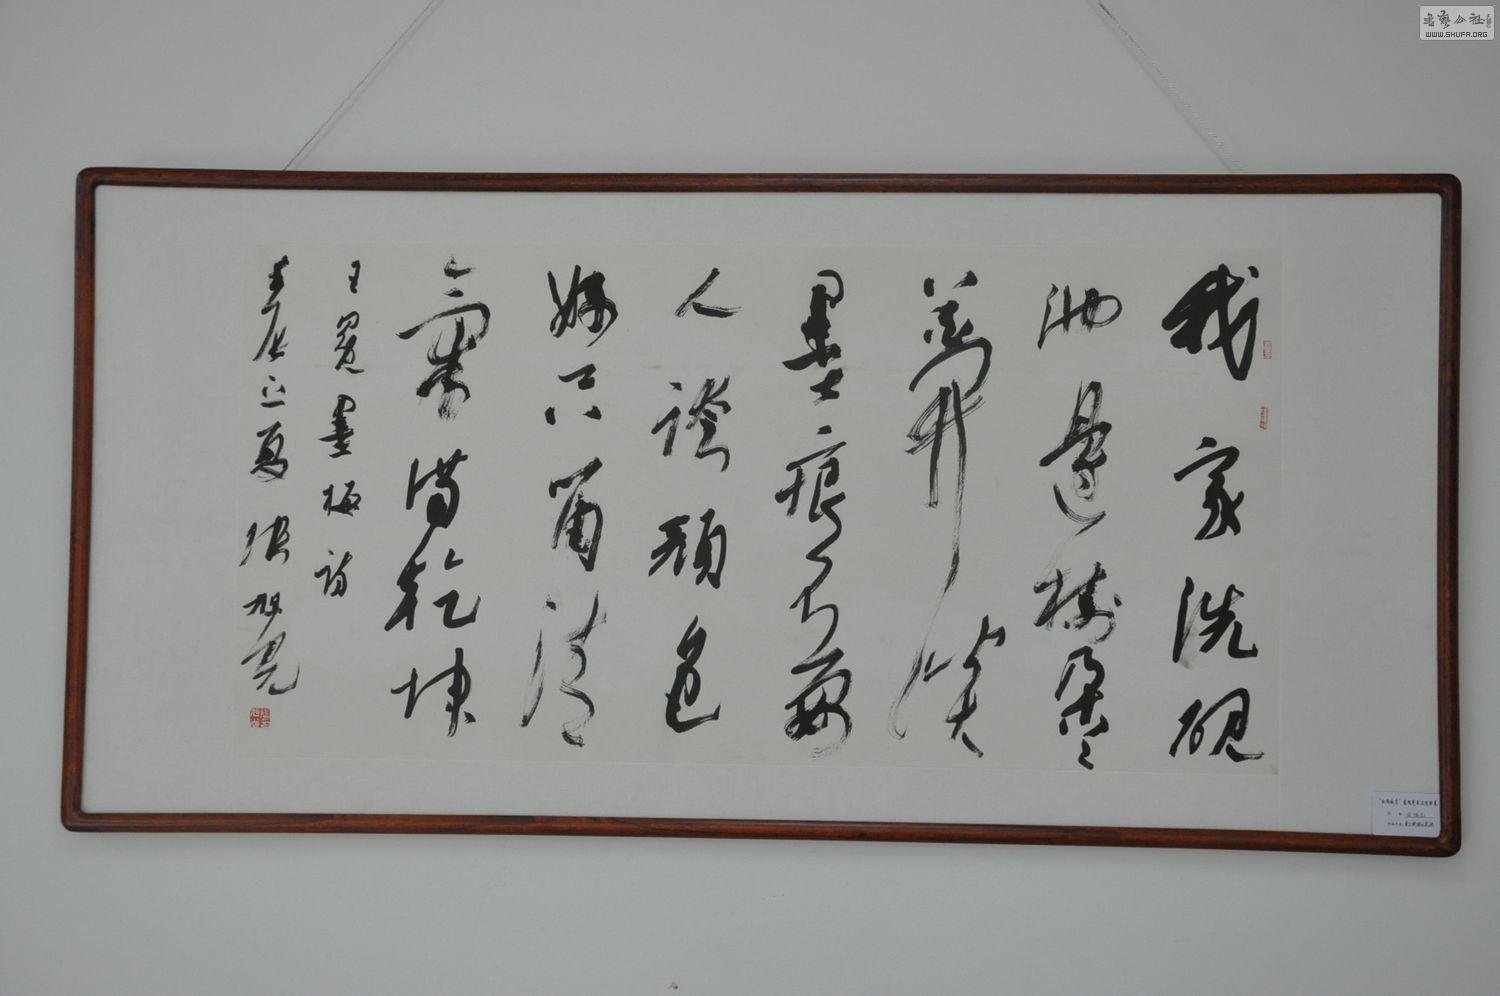 我家洗硯
池邊樹朵々
花開淡
墨痕不要
人誇顏色
好只留清
氣滿乾坤
王冕墨梅詩
夏 張旭
書藝公社
WWW.SHUFA.ORG